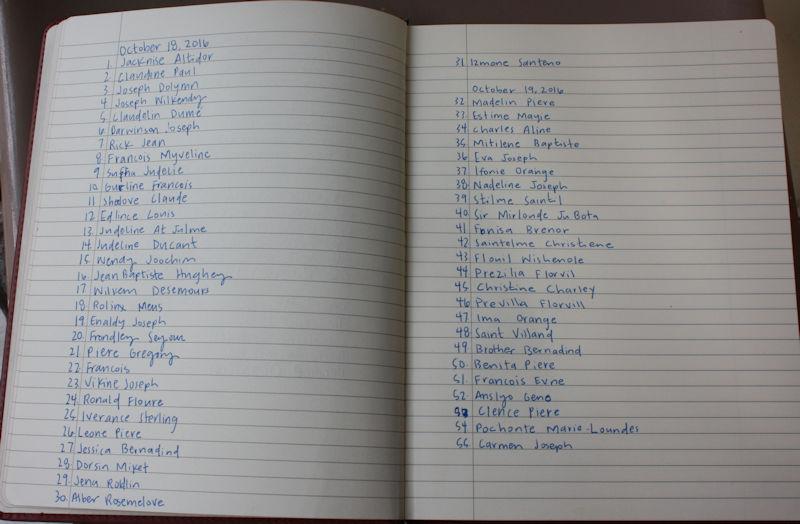 October 18, 2016
1. Jacknise Altidor
2 Claudine Paul
3 Joseph Dolymn
4 Joseph Wilkendy
5 Claudelin Dume
6 Darwinson Joseph
7 Rick Jean
8 Francois Myveline
9 Judelie
10 Guerline Francois
11 Shalove Claude
12 Edlince Louis
13. Judeline At Julme
14. Judeline Ducant
15 Wendy Joochim
16 Jean Baptiste Hughey
17 Wilvem Desemours
18 Rolinx Meus
19 Enaldy Joseph
20. Frandley Seyour
21 Piere Gregory
22 Francois
23. Vikine Joseph
24 Ronald Floure
25 Iverance Sterling
26 Leone Piere
27 Jessica Bernadind
28 Dorsin Miket
29. Jena Roldlin
30. Alber Rosemelove
31 Izmone Santeno
October 19, 2016
32 Madelin Piere
33 Estime Mayie
34 Charles Aline
35 Mitilene Baptiste
36 Eva Joseph
37 Ifonie Orange
38 Nadeline Joseph
39 Stilme Saint
40. Sir Mirlonde Ju Bota
41 Fanisa Brenor
42 Saintelme Christiene
43 Flouil Wishenole
44 Prezilia Florvil
45 Christine Charley
46 Previlla Florvill
47 Ima Orange
48 Saint Villand
49 Brother Bernadind
50. Benita Piere
51. Francois Evne
52. Anslyo Geno
53 Clence Piere
54 Pochonte Marie-Loundes
55 Carmen Joseph